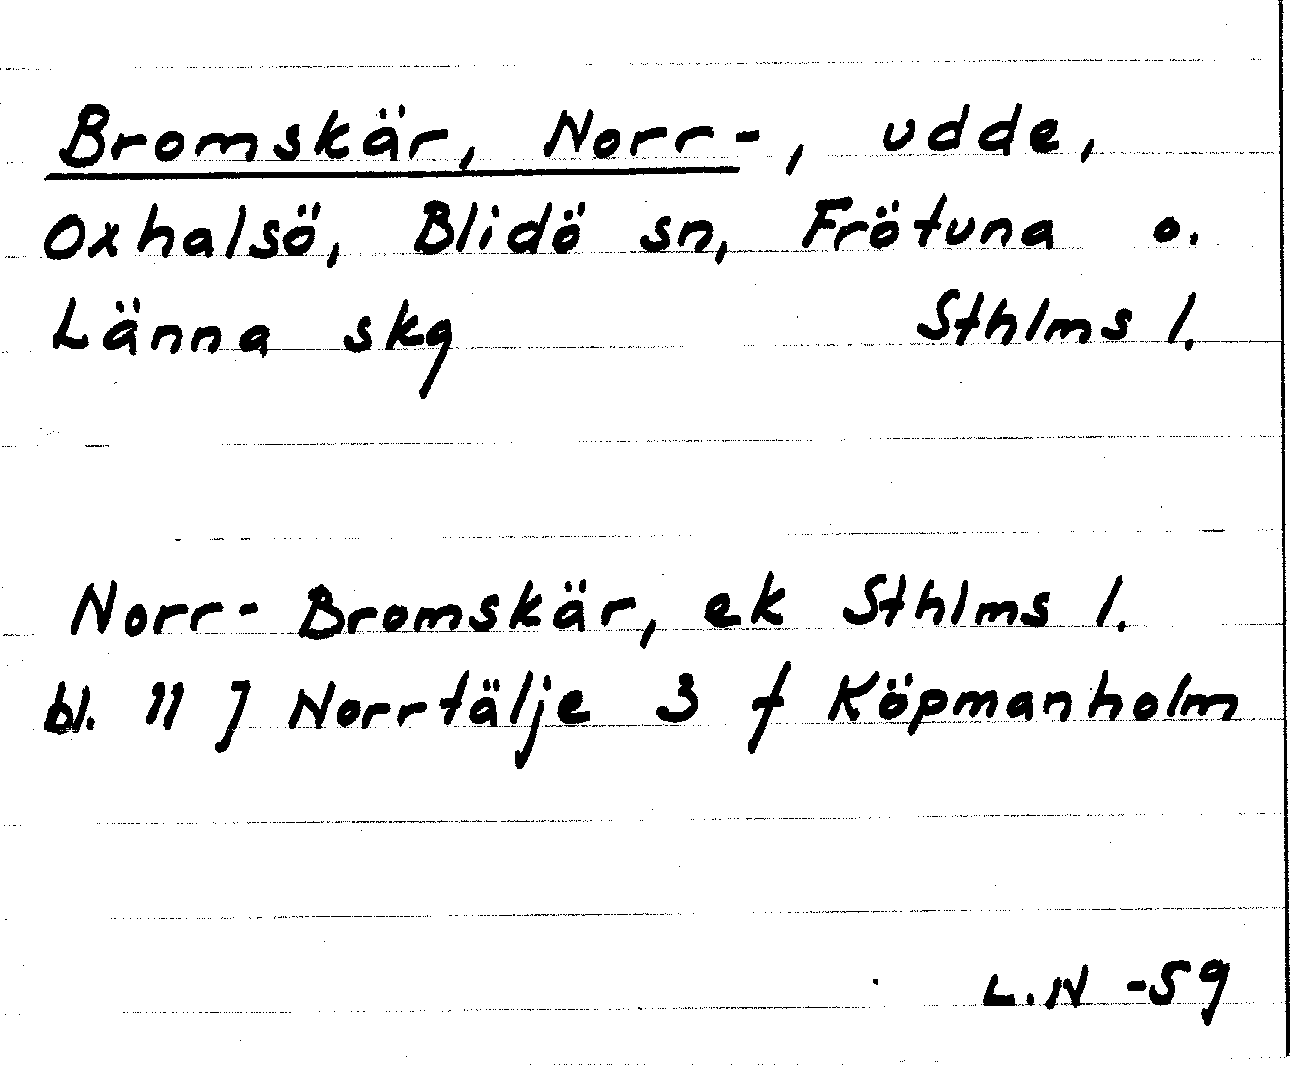 Bromskär, Norr-, udde,
Oxhalsö, Blidö sn, Frötuna o.
Länna skg Sthlms l.
Norr- Bromskär, ek Sthlms l.
bl. 11 J Norrtälje 3 f Köpmanholm
L.N -59